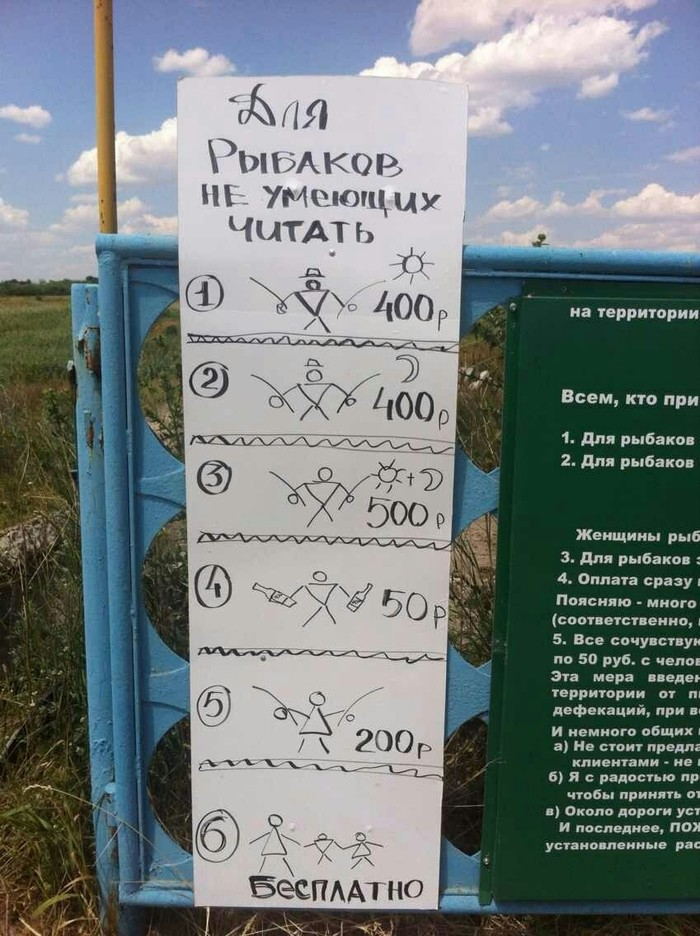 Для
РЫБАКОВ
НЕ УМЕЮЩИХ
ЧИТАТЬ
1 400р
2 400р
3 + 500р
4 50р
5 200р
6
БЕСПЛАТНО
на территории
Всем, кто при
1. Для рыбаков
2. Для рыбаков
Женщины рыб
3. Для рыбаков з
4. Оплата сразу
Поясняю - много
(соответственно,
5. Все сочувствую
по 50 руб. с челов
Эта мера введен
территории от
дефекаций, при
И немного общих
а) Не стоит предла
клиентами - не
б) Я с радостью пр
чтобы принять от
в) Около дороги уст
И последнее, ПОЖ
установленные рас